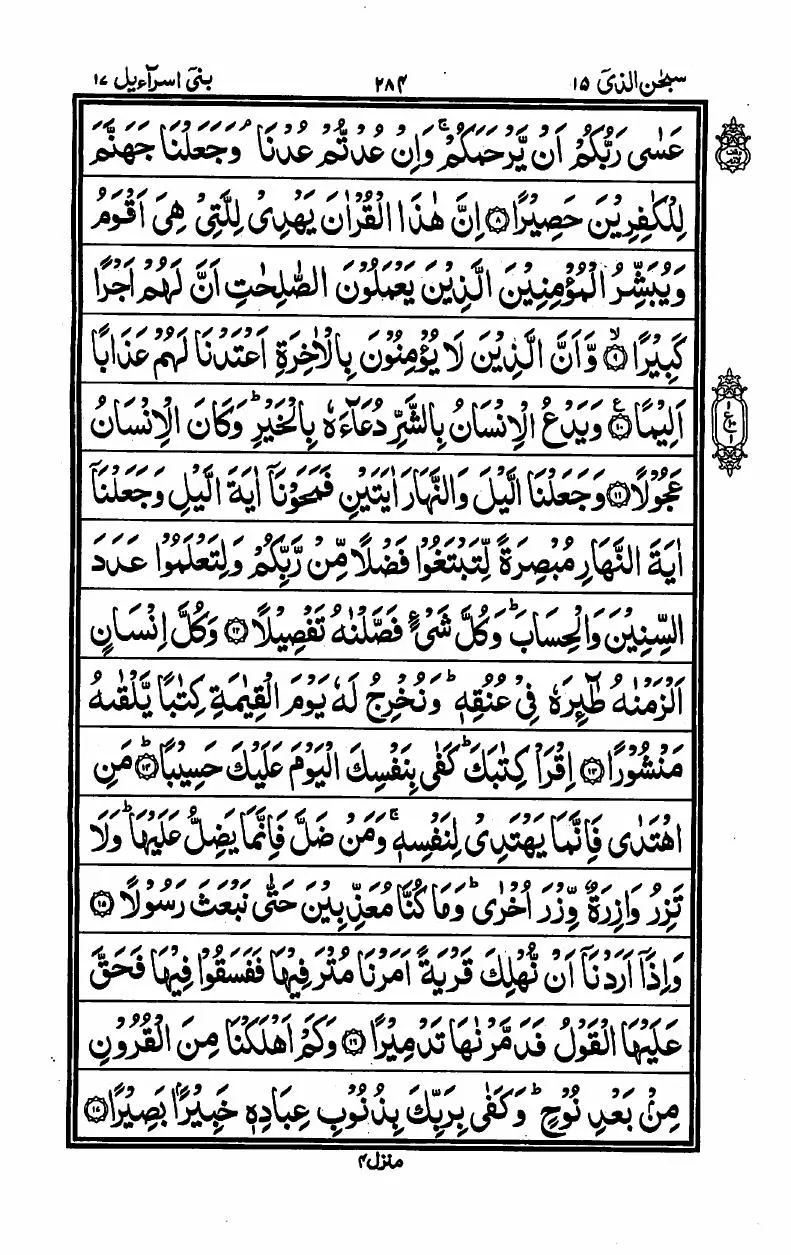 سبحٰن الذیٓ ١٥
٢٨٤
بنیٓ اسرآءیل ١٧
عَسٰى رَبُّكُمْ اَنْ يَّرْحَمَكُمْ ۚ وَاِنْ عُدْتُّمْ عُدْنَا ۘ وَجَعَلْنَا جَهَنَّمَ
لِلْكٰفِرِيْنَ حَصِيْرًا ۝٨ اِنَّ هٰذَا الْقُرْاٰنَ يَهْدِىْ لِلَّتِىْ هِىَ اَقْوَمُ
وَيُبَشِّرُ الْمُؤْمِنِيْنَ الَّذِيْنَ يَعْمَلُوْنَ الصّٰلِحٰتِ اَنَّ لَهُمْ اَجْرًا
كَبِيْرًا ۝٩ۙ وَّاَنَّ الَّذِيْنَ لَا يُؤْمِنُوْنَ بِالْاٰخِرَةِ اَعْتَدْنَا لَهُمْ عَذَابًا
اَلِيْمًا ۝١٠ۧ وَيَدْعُ الْاِنْسَانُ بِالشَّرِّ دُعَآءَهٗ بِالْخَيْرِ ؕ وَكَانَ الْاِنْسَانُ
عَجُوْلًا ۝١١ وَجَعَلْنَا الَّيْلَ وَالنَّهَارَ اٰيَتَيْنِ فَمَحَوْنَاۤ اٰيَةَ الَّيْلِ وَجَعَلْنَاۤ
اٰيَةَ النَّهَارِ مُبْصِرَةً لِّتَبْتَغُوْا فَضْلًا مِّنْ رَّبِّكُمْ وَلِتَعْلَمُوْا عَدَدَ
السِّنِيْنَ وَالْحِسَابَ ؕ وَكُلَّ شَىْءٍ فَصَّلْنٰهُ تَفْصِيْلًا ۝١٢ وَكُلَّ اِنْسَانٍ
اَلْزَمْنٰهُ طٰٓئِرَهٗ فِىْ عُنُقِهٖ ؕ وَنُخْرِجُ لَهٗ يَوْمَ الْقِيٰمَةِ كِتٰبًا يَّلْقٰىهُ
مَنْشُوْرًا ۝١٣ اِقْرَاْ كِتٰبَكَ ؕ كَفٰى بِنَفْسِكَ الْيَوْمَ عَلَيْكَ حَسِيْبًا ۝١٤ؕ مَنِ
اهْتَدٰى فَاِنَّمَا يَهْتَدِىْ لِنَفْسِهٖ ۚ وَمَنْ ضَلَّ فَاِنَّمَا يَضِلُّ عَلَيْهَا ؕ وَلَا
تَزِرُ وَازِرَةٌ وِّزْرَ اُخْرٰى ؕ وَمَا كُنَّا مُعَذِّبِيْنَ حَتّٰى نَبْعَثَ رَسُوْلًا ۝١٥
وَاِذَاۤ اَرَدْنَاۤ اَنْ نُّهْلِكَ قَرْيَةً اَمَرْنَا مُتْرَفِيْهَا فَفَسَقُوْا فِيْهَا فَحَقَّ
عَلَيْهَا الْقَوْلُ فَدَمَّرْنٰهَا تَدْمِيْرًا ۝١٦ وَكَمْ اَهْلَكْنَا مِنَ الْقُرُوْنِ
مِنْۢ بَعْدِ نُوْحٍ ؕ وَكَفٰى بِرَبِّكَ بِذُنُوْبِ عِبَادِهٖ خَبِيْرًۢا بَصِيْرًا ۝١٧
منزل ٤